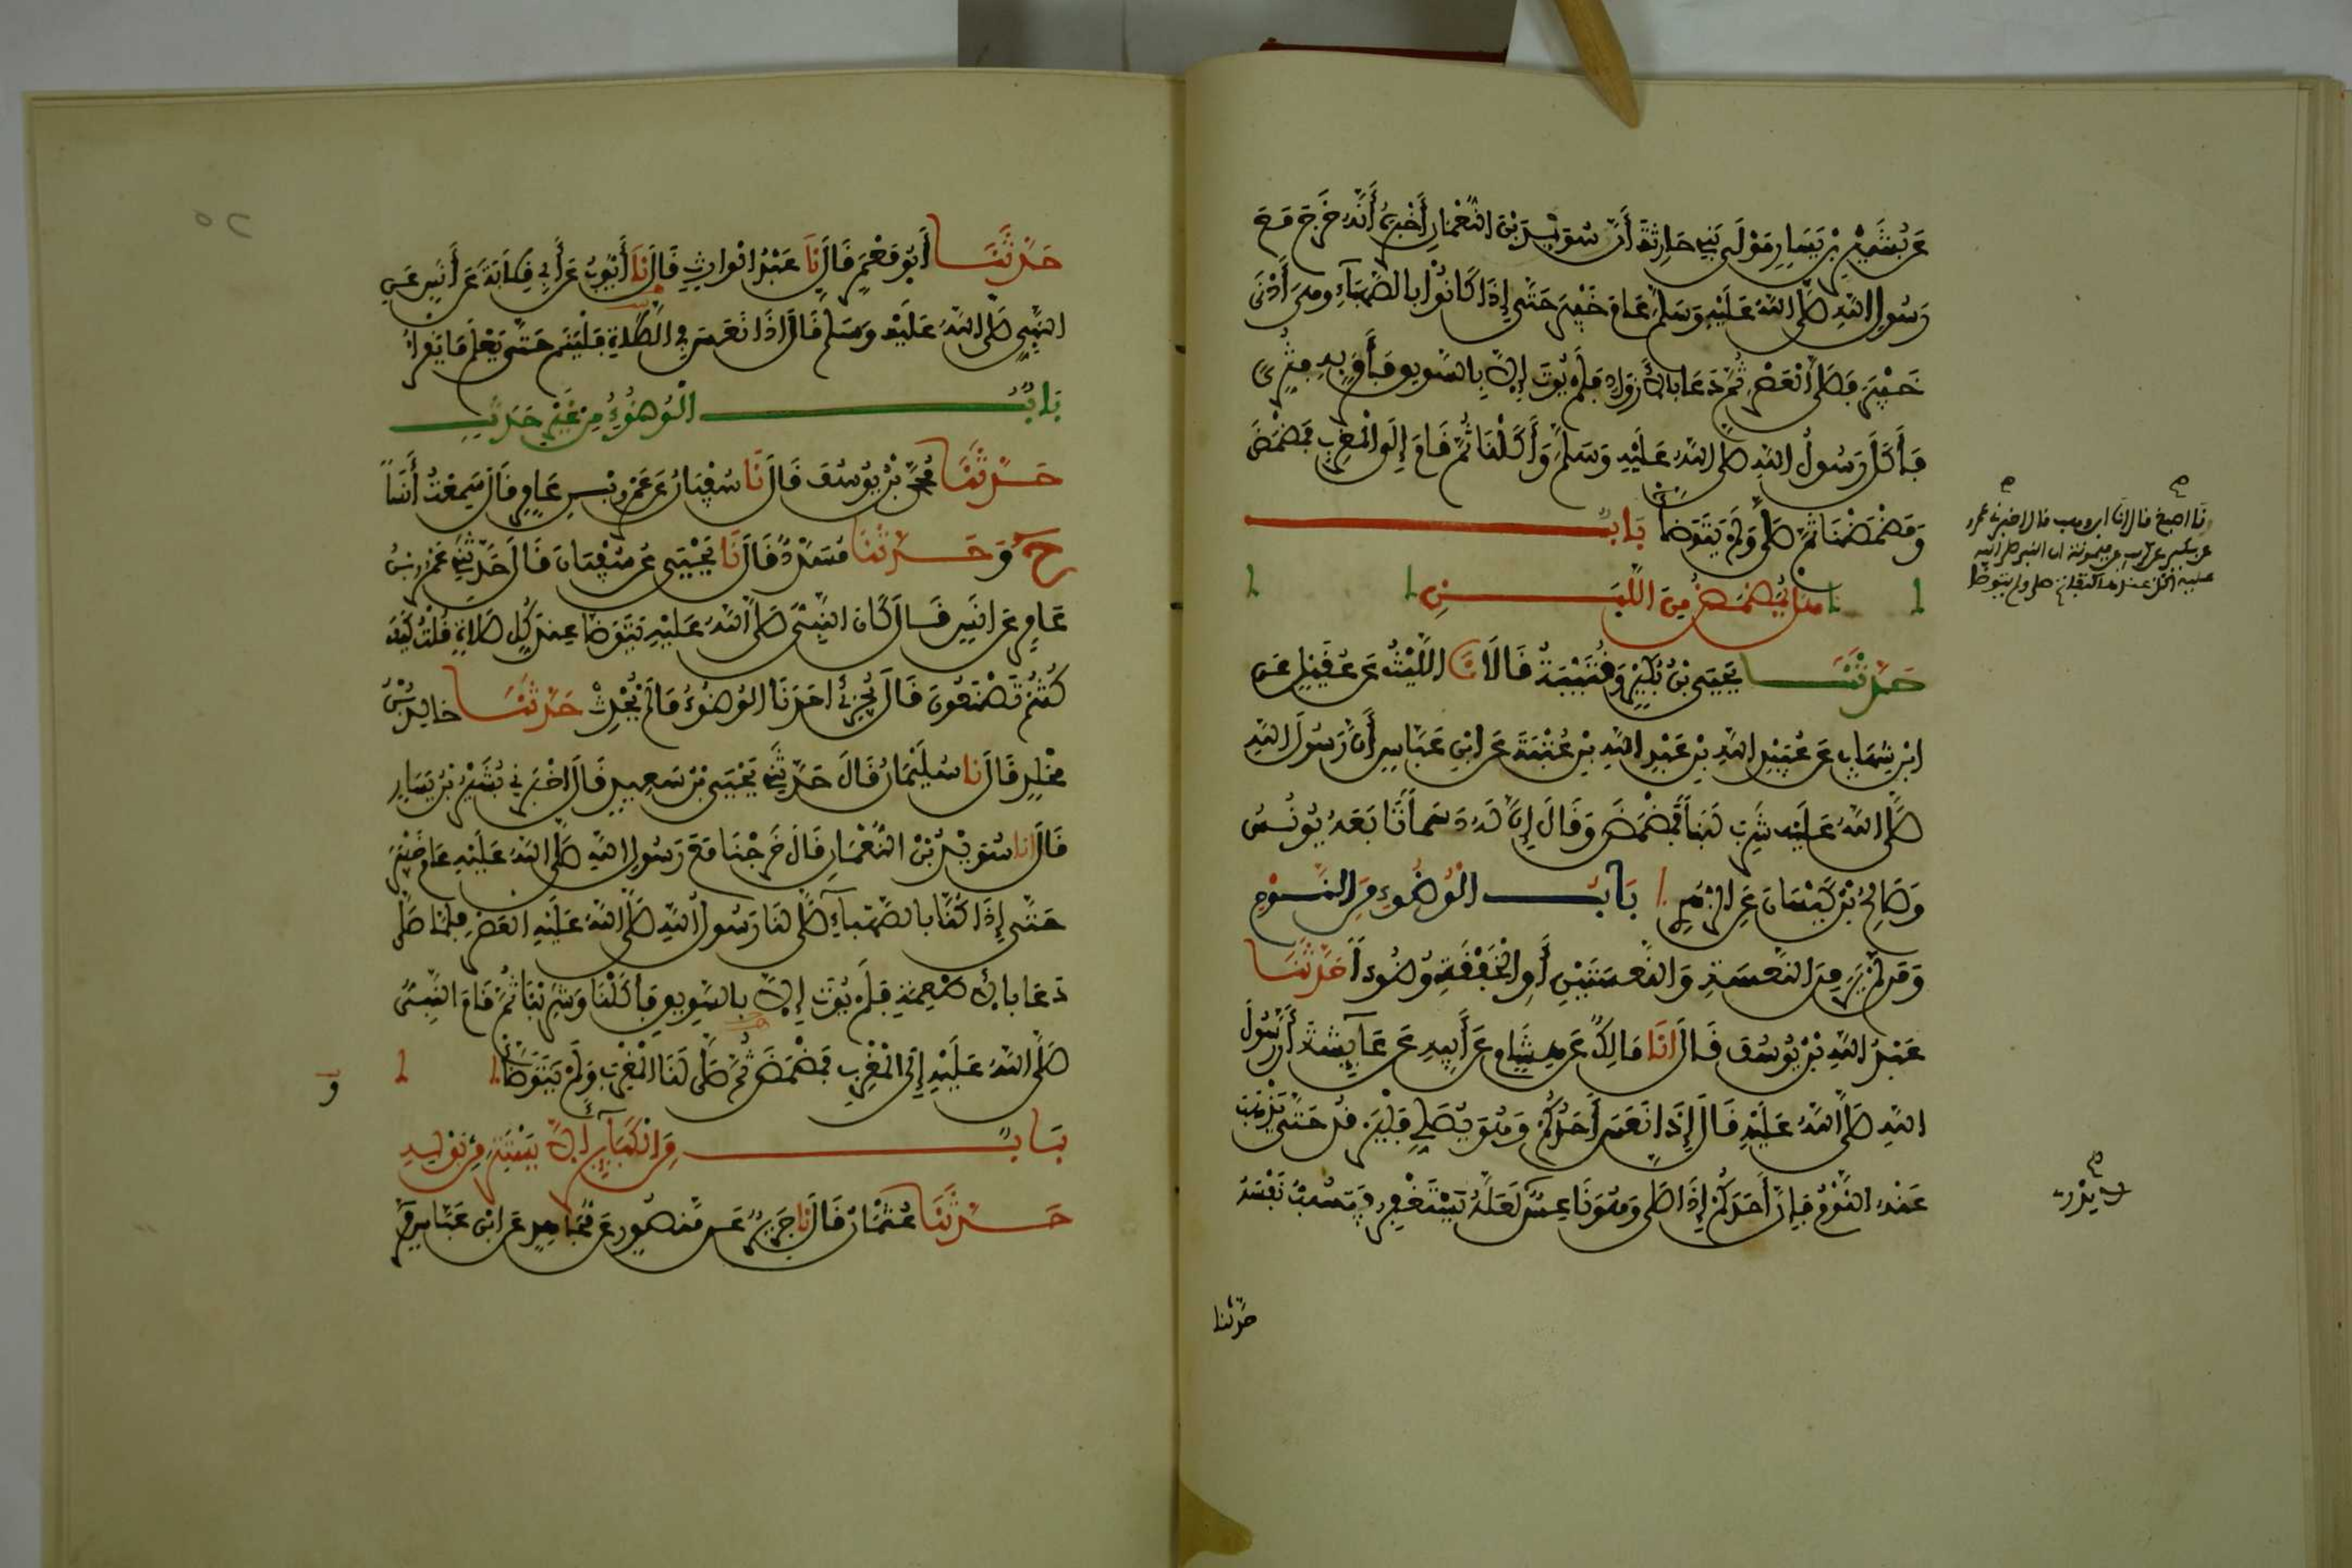 عَن بُشَيْرِ بْنِ يَسَارٍ مَوْلَى بَنِي حَارِثَةَ أَنَّ سُوَيْدَ بْنَ النُّعْمَانِ أَخْبَرَهُ أَنَّهُ خَرَجَ مَعَ
رَسُولِ اللهِ صَلَّى اللهُ عَلَيْهِ وَسَلَّمَ عَامَ خَيْبَرَ حَتَّى إِذَا كَانُوا بِالصَّهْبَاءِ وهي أَدْنَى
خَيْبَرَ فَصَلَّى الْعَصْرَ ثُمَّ دَعَا بِالأَزْوَادِ فَلَمْ يُوتَ إِلاَّ بِالسَّوِيقِ فَأَمَرَ بِهِ فَثُرِّيَ
فَأَكَلَ رَسُولُ اللهِ صَلَّى اللهُ عَلَيْهِ وَسَلَّمَ وَأَكَلْنَا ثُمَّ قَامَ إِلَى الْمَغْرِبِ فَمَضْمَضَ
وَمَضْمَضْنَا ثُمَّ صَلَّى وَلَمْ يَتَوَضَّأْ بَابٌ
هل يُمَضْمَضُ مِنَ اللَّبَنِ
حَدَّثَنَا يَحْيَى بْنُ بُكَيْرٍ وَقُتَيْبَةُ قَالَا نَا اللَّيْثُ عَن عُقَيْلٍ عَنِ
ابْنِ شِهَابٍ عَن عُبَيْدِ اللهِ بْنِ عَبْدِ اللهِ بْنِ عُتْبَةَ عَنِ ابْنِ عَبَّاسٍ أَنَّ رَسُولَ اللهِ
صَلَّى اللهُ عَلَيْهِ شَرِبَ لَبَنًا فَمَضْمَضَ وَقَالَ إِنَّ لَهُ دَسَمًا تَابَعَهُ يُونُسُ
وَصَالِحُ بْنُ كَيْسَانَ عَنِ الزُّهْرِيِّ بَابُ الْوُضُوءِ مِنَ النَّوْمِ
وَمَن لَمْ يَرَ مِنَ النَّعْسَةِ وَالنَّعْسَتَيْنِ أَوِ الْخَفْقَةِ وُضُوءًا حَدَّثَنَا
عَبْدُ اللهِ بْنُ يُوسُفَ قَالَ انَا مَالِكٌ عَن هِشَامٍ عَن أَبِيهِ عَن عَائِشَةَ أَنَّ رَسُولَ
اللهِ صَلَّى اللهُ عَلَيْهِ قَالَ إِذَا نَعَسَ أَحَدُكُمْ وَهُوَ يُصَلِّي فَلْيَرْقُدْ حَتَّى يَذْهَبَ
عَنْهُ النَّوْمُ فَإِنَّ أَحَدَكُمْ إِذَا صَلَّى وَهُوَ نَاعِسٌ لَعَلَّهُ يَسْتَغْفِرُ فَيَسُبُّ نَفْسَهُ
حدثنا
نا اصبغ قال انا ابن وهب قال اخبرني عمرو
عن بكير عن كريب عن ميمونة ان النبي صلى الله
عليه اكل عندها كتفا ثم صلى ولم يتوضا
حَدَّثَنَا أَبُو مَعْمَرٍ قَالَ نَا عَبْدُ الْوَارِثِ قَالَ نَا أَيُّوبُ عَن أَبِي قِلَابَةَ عَن أَنَسٍ عَنِ
النَّبِيِّ صَلَّى اللهُ عَلَيْهِ وَسَلَّمَ قَالَ إِذَا نَعَسَ فِي الصَّلَاةِ فَلْيَنَمْ حَتَّى يَعْلَمَ مَا يَقْرَأُ
بَابُ الْوُضُوءِ مِنْ غَيْرِ حَدَثٍ
حَدَّثَنَا مُحَمَّدُ بْنُ يُوسُفَ قَالَ نَا سُفْيَانُ عَن عَمْرِو بْنِ عَامِرٍ قَالَ سَمِعْتُ أَنَسًا
ح وَحَدَّثَنَا مُسَدَّدٌ قَالَ نَا يَحْيَى عَن سُفْيَانَ قَالَ حَدَّثَنِي عَمْرُو بْنُ
عَامِرٍ عَن أَنَسٍ قَالَ كَانَ النَّبِيُّ صَلَّى اللهُ عَلَيْهِ يَتَوَضَّأُ عِنْدَ كُلِّ صَلَاةٍ قُلْتُ كَيْفَ
كُنْتُمْ تَصْنَعُونَ قَالَ يُجْزِئُ أَحَدَنَا الْوُضُوءُ مَا لَمْ يُحْدِثْ حَدَّثَنَا خَالِدُ بْنُ
مَخْلَدٍ قَالَ نَا سُلَيْمَانُ قَالَ حَدَّثَنِي يَحْيَى بْنُ سَعِيدٍ قَالَ أَخْبَرَنِي بُشَيْرُ بْنُ يَسَارٍ
قَالَ انا سُوَيْدُ بْنُ النُّعْمَانِ قَالَ خَرَجْنَا مَعَ رَسُولِ اللهِ صَلَّى اللهُ عَلَيْهِ عَامَ خَيْبَرَ
حَتَّى إِذَا كُنَّا بِالصَّهْبَاءِ صَلَّى لَنَا رَسُولُ اللهِ صَلَّى اللهُ عَلَيْهِ الْعَصْرَ فَلَمَّا صَلَّى
دَعَا بِالأَطْعِمَةِ فَلَمْ يُوتَ إِلاَّ بِالسَّوِيقِ فَأَكَلْنَا وَشَرِبْنَا ثُمَّ قَامَ النَّبِيُّ
صَلَّى اللهُ عَلَيْهِ إِلَى الْمَغْرِبِ فَمَضْمَضَ ثُمَّ صَلَّى لَنَا الْمَغْرِبَ وَلَمْ يَتَوَضَّأْ
بَابٌ مِنَ الْكَبَائِرِ أَلاَّ يَسْتَتِرَ مِنْ بَوْلِهِ
حَدَّثَنَا عُثْمَانُ قَالَ نَا جَرِيرٌ عَن مَنْصُورٍ عَن مُجَاهِدٍ عَنِ ابْنِ عَبَّاسٍ قَالَ